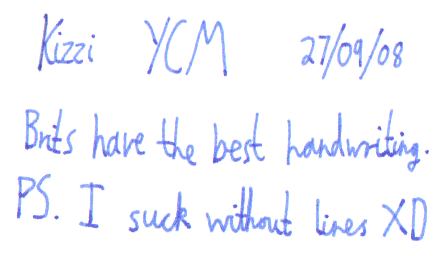 Kizzi YCM 27/09/08
Brits have the best handwriting.
PS. I suck without lines XD